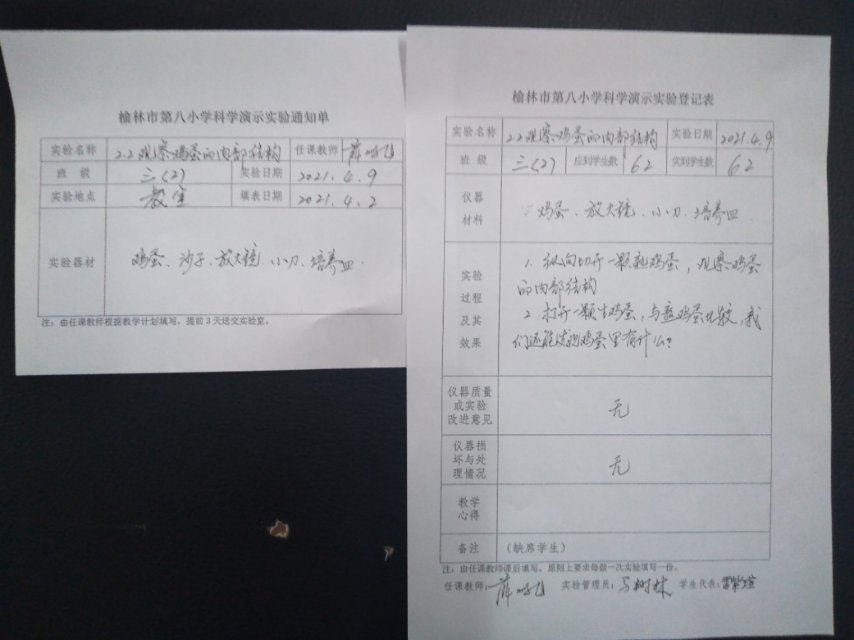 榆林市第八小学科学演示实验通知单
实验名称 2.2观察鸡蛋的内部结构 任课教师 薛
班 级 三(2) 实验日期 2021.4.9
实验地点 教室 填表日期 2021.4.2
实验器材 鸡蛋、沙子、放大镜 小刀、培养皿.
注：由任课教师根据教学计划填写，提前3天送交实验室。
榆林市第八小学科学演示实验登记表
实验名称 2.2观察鸡蛋的内部结构 实验日期 2021.4.9
班 级 三(2) 应到学生数 62 实到学生数 62
仪器
材料
鸡蛋、放大镜、小刀、培养皿.
实验
过程
及其
效果
1. 纵向切开一颗熟鸡蛋，观察鸡蛋
的内部结构
2. 打开一颗生鸡蛋，与熟鸡蛋比较，我
们还能发现鸡蛋里有什么？
仪器质量
或实验
改进意见
无
仪器损
坏与处
理情况
无
教学
心得
备注 （缺席学生）
注：由任课教师课后填写，原则上要求每做一次实验填写一份。
任课教师：薛 实验管理员：马树林 学生代表：